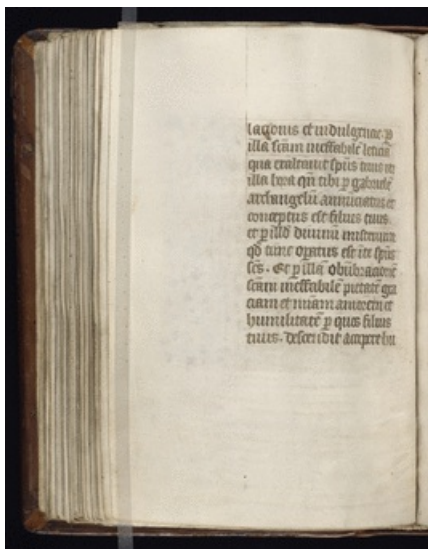 lacionis et indulgencie. p
illa scām ineffabilē leticiā
qua exaltauit spūs tuus in
illa hora qn̄ tibi p gabrielē
archangelū annūciatus et
conceptus est filius tuus
et p illd diuinū misteriū
qd tunc opatus est ī te spūs
scs. Et p illā obūbracionē
scām ineffabilē pietatē gra
ciam et miam amorem et
humilitatē p quos filius
tuus. descendit accipere hu